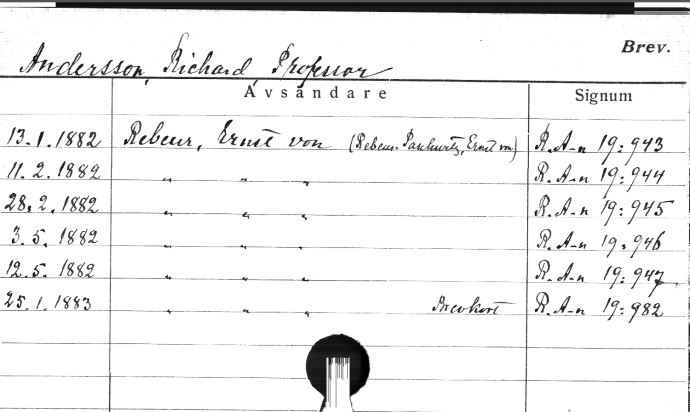 Brev.
Andersson, Richard, Professor
Avsändare Signum
13.1.1882 Rebeur, Ernst von (Rebeur-Paschwitz, Ernst von) R.A-n 19:943
11.2.1882 " " " R.A-n 19:944
28.2.1882 " " " R.A-n 19:945
3.5.1882 " " " R.A-n 19:946
12.5.1882 " " " R.A-n 19:947
25.1.1883 " " " Brevkort R.A-n 19:982